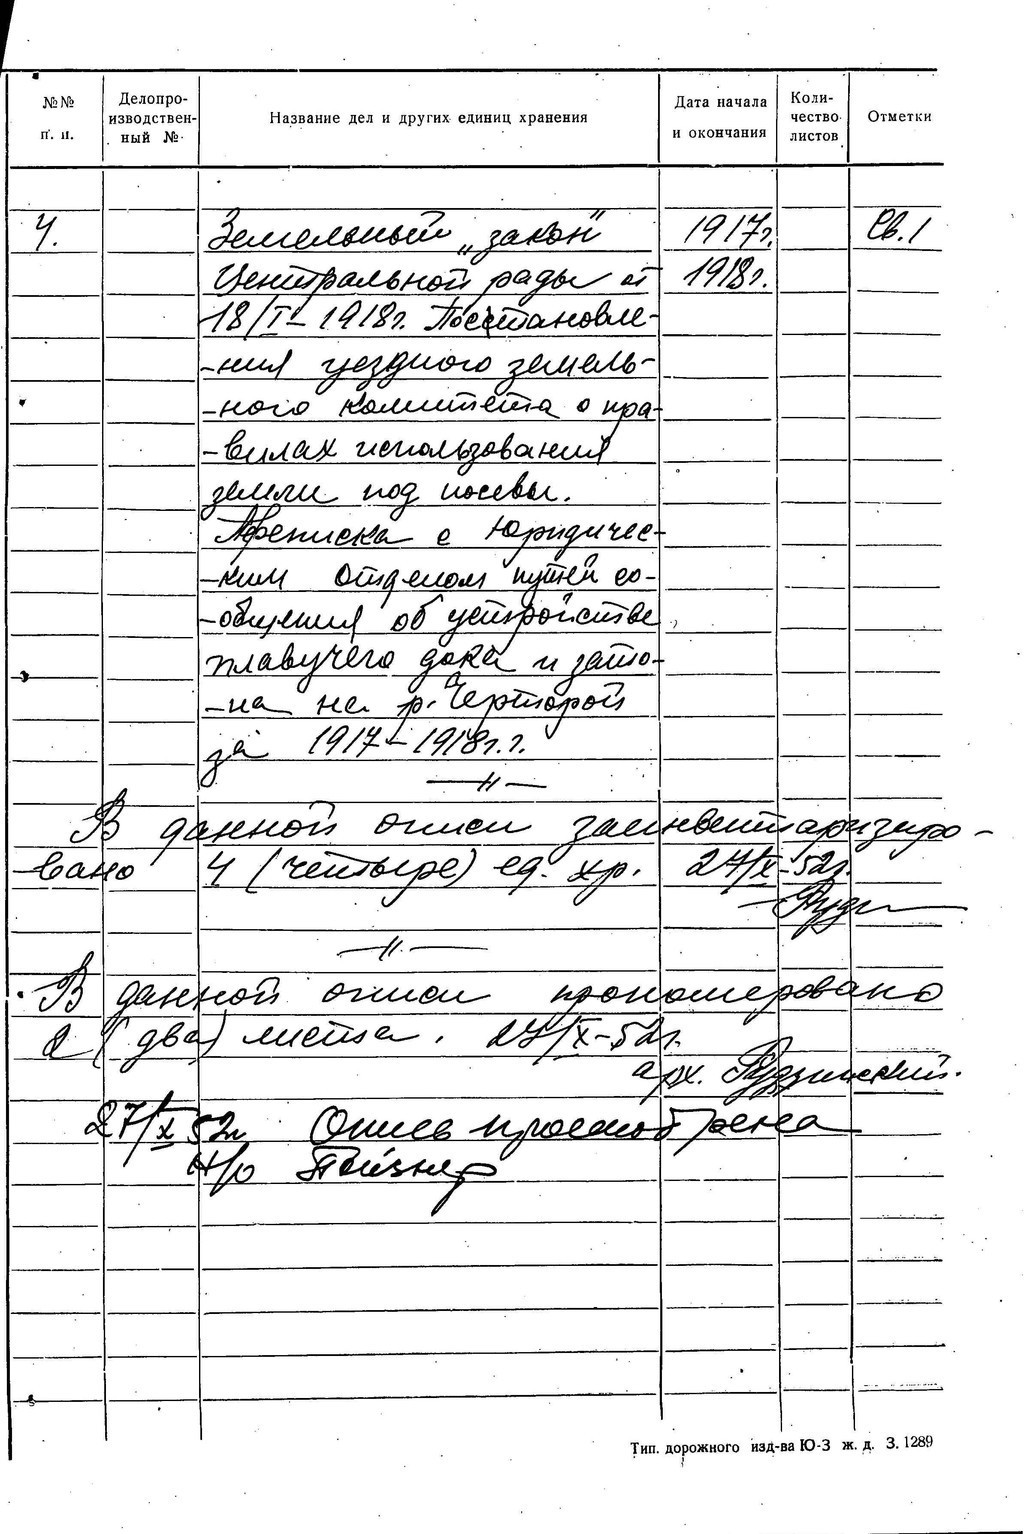 №№ п. п.
Делопро-
изводствен-
ный №
Название дел и других единиц хранения
Дата начала
и окончания
Коли-
чество
листов
Отметки
4. Земельный „закон" 1917г. Св. 1
Центральной рады от 1918г.
18/I-1918г. Постановле-
-ния уездного земель-
-ного комитета о пра-
-вилах использования
земли под посевы.
Переписка с юридичес-
-ким отделом путей со-
-общения об устройстве
плавучего дока и зато-
-на на р. Черторой
за 1917-1918г.г.
—"—
В данной описи заинвентаризиро-
вано 4 (четыре) ед. хр. 27/X-52г.
—"—
В данной описи пронумеровано
2 (два) листа. 27/X-52г.
арх. Рудзинский.
27/X 52г Опись просмотрена
Н/о
Тип. дорожного изд-ва Ю-З ж. д. З. 1289